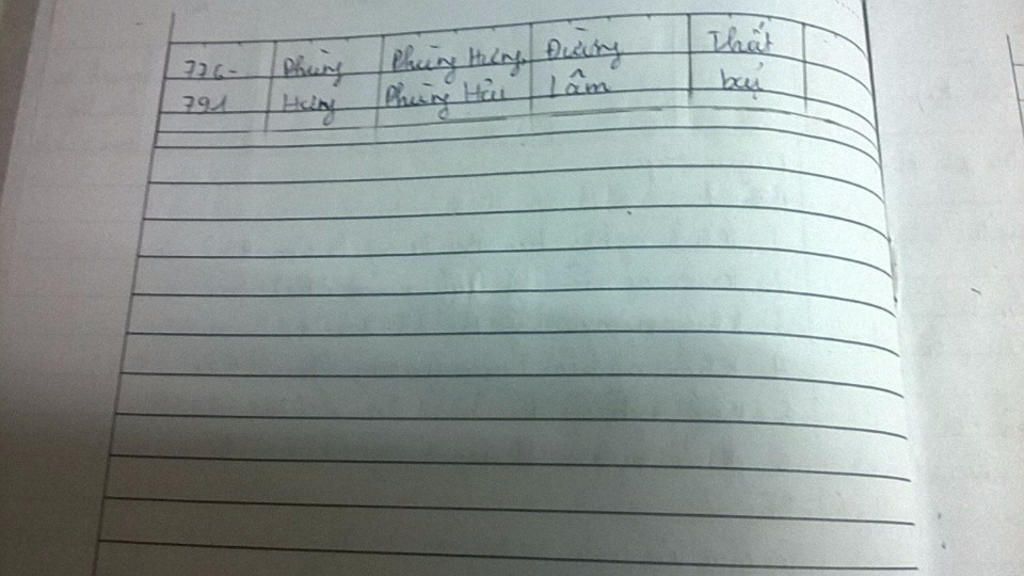 776- Phùng Phùng Hưng, Đường Thất
791 Hưng Phùng Hải Lâm bại